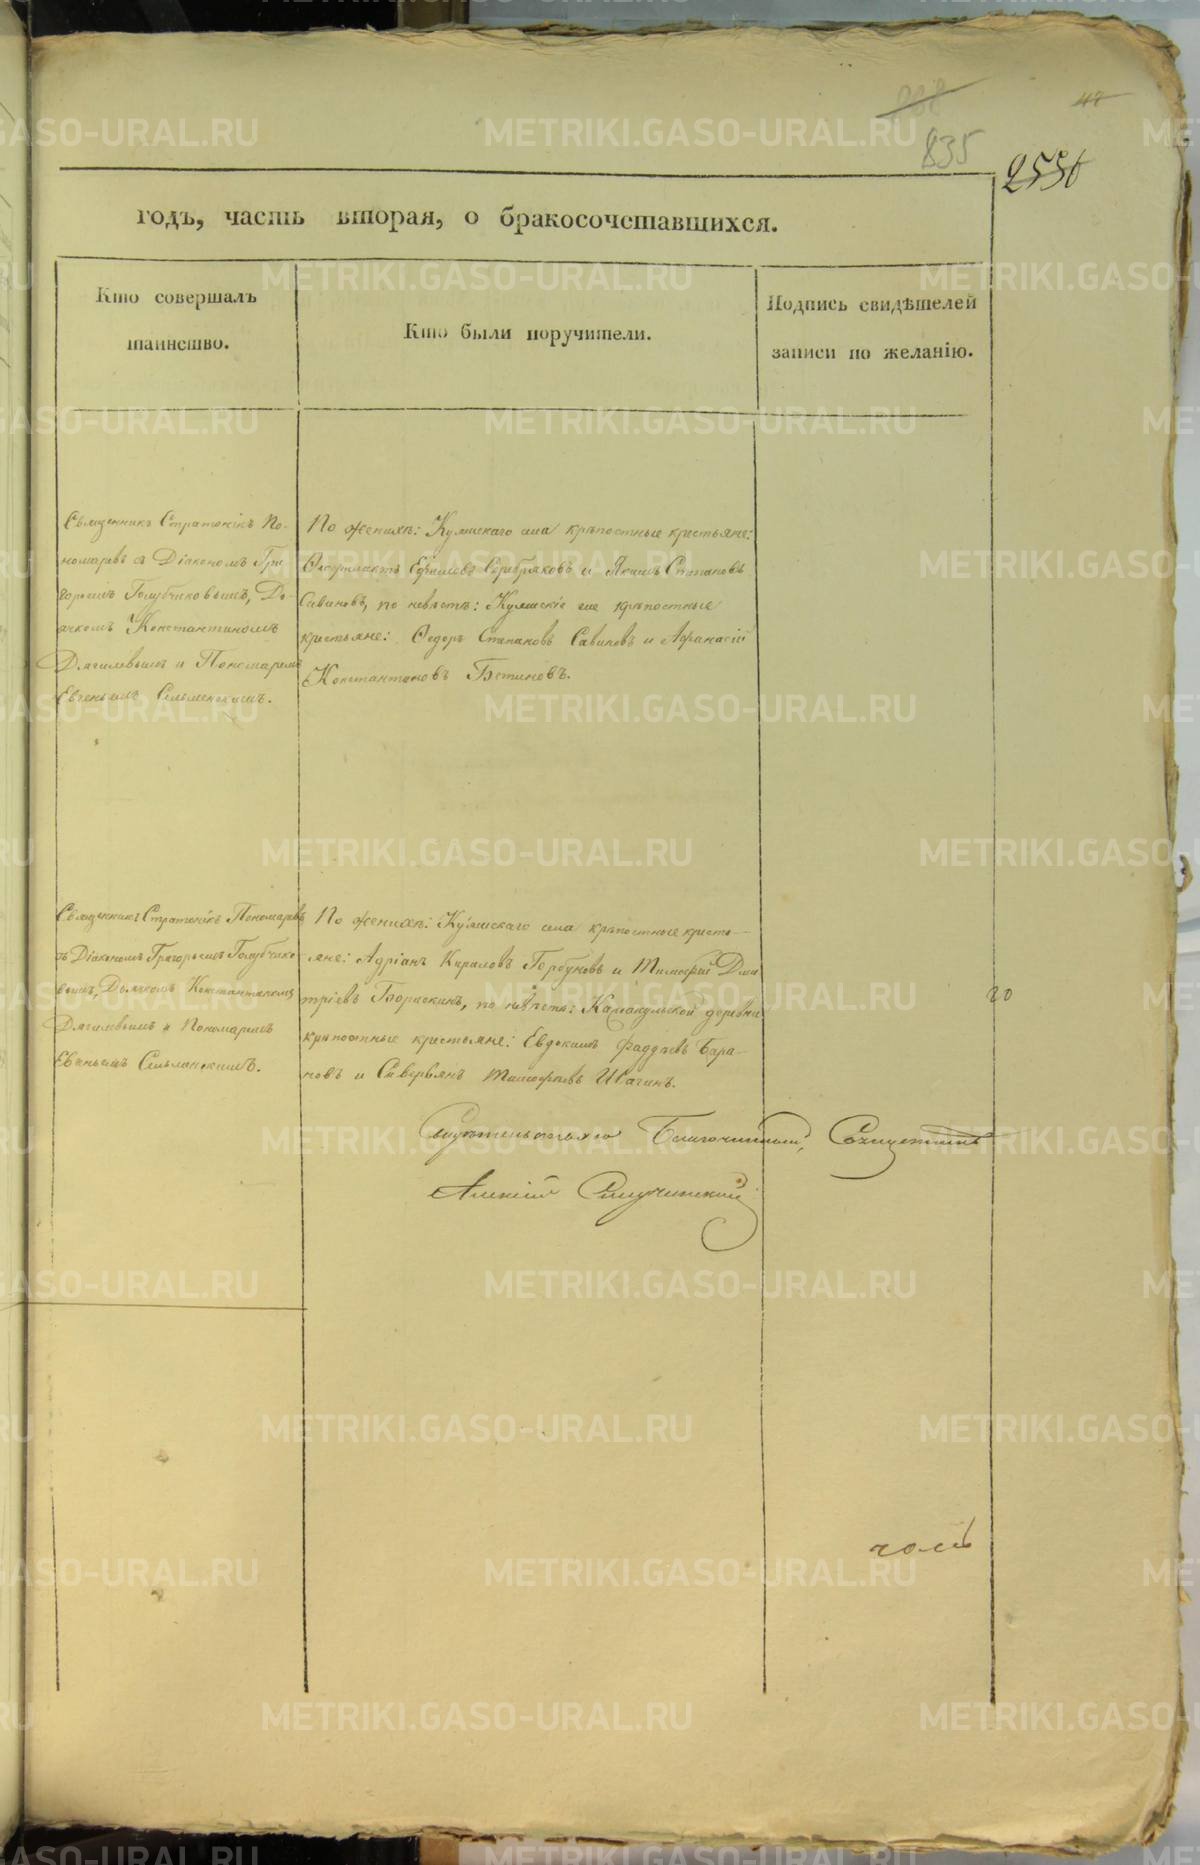 835
2556
годъ, часть вторая, о бракосочетавшихся.
Кто совершалъ
таинство.
Кто были поручители.
Подпись свидѣтелей
записи по желанію.
Священникъ Стратоникъ По-
номаревъ съ Діакономъ Гри
горіемъ Голубчиковымъ, Дь-
ячкомъ Константиномъ
Дягилевымъ и Пономаремъ
Евгеньемъ Сельменскимъ.
По женихѣ: Куяшскаго села крѣпостные крестьяне:
Ѳеофилактъ Ефимовъ Серебряковъ и Якимъ Степановъ
Савиновъ, по невѣстѣ: Куяшскіе же крѣпостные
крестьяне: Ѳедоръ Степановъ Савиновъ и Афанасій
Константиновъ Бетиновъ.
Священникъ Стратоникъ Пономаревъ
съ Діакономъ Григорьемъ Голубчико
вымъ, Дьячкомъ Константиномъ
Дягилевымъ и Пономаремъ
Евгеньемъ Сельменскимъ.
По женихѣ: Куяшскаго села крѣпостные кресть-
яне: Адріанъ Кириловъ Горбуновъ и Тимофей Дми
тріевъ Борискинъ, по невѣстѣ: Каракульской деревни
крѣпостные крестьяне: Евдокимъ Фаддѣевъ Бара-
новъ и Саверьянъ Тимофѣевъ Ивагинъ.
20
Свидѣтельствовалъ Благочинный, Священникъ
Алексій
METRIKI.GASO-URAL.RU